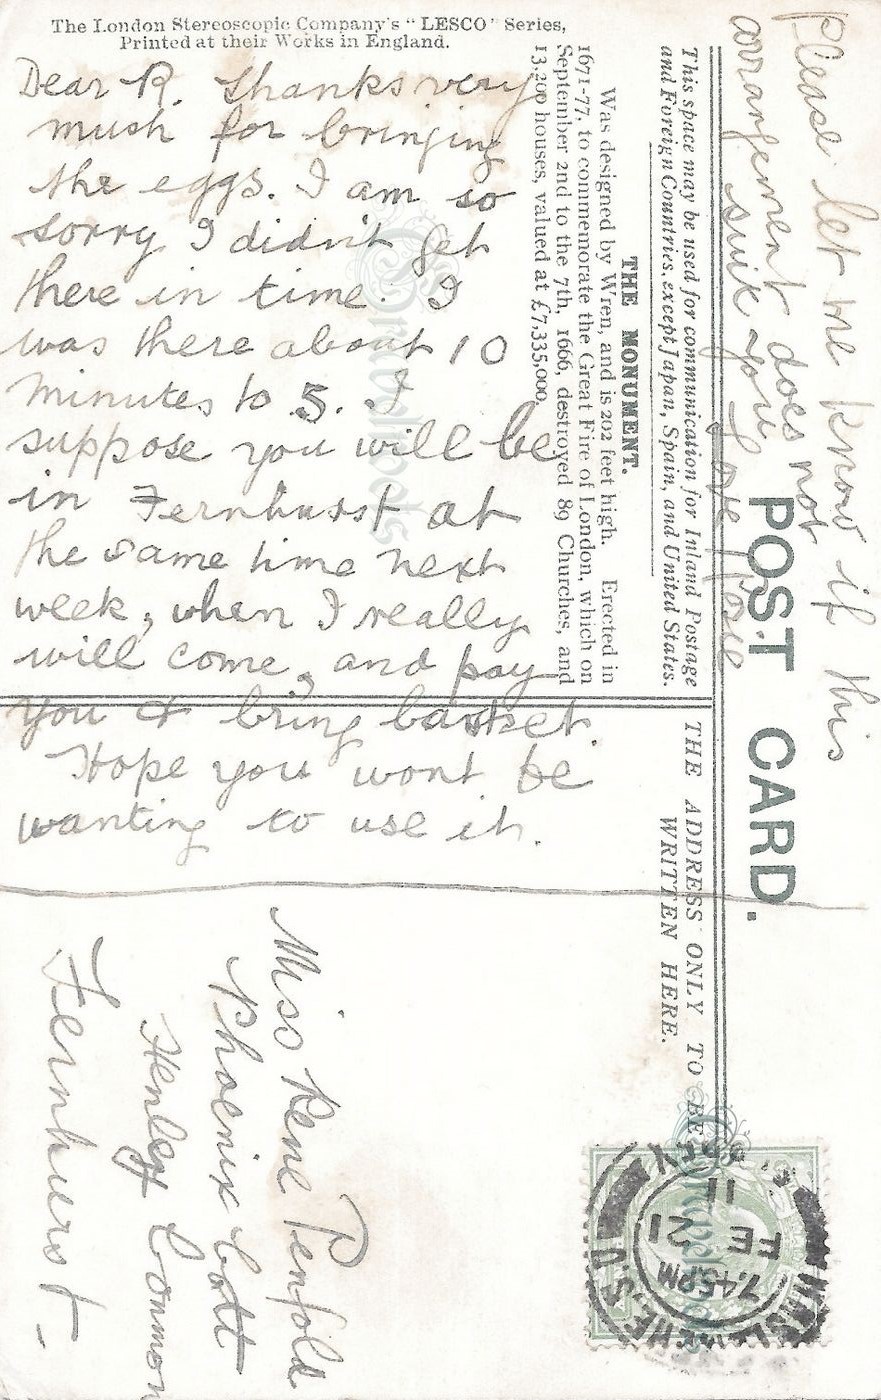 The London Stereoscopic Company's "LESCO" Series,
Printed at their Works in England.
Dear R. thanks very
much for bringing
the eggs. I am so
sorry I didn't get
there in time. I
was there about 10
minutes to 5. I
suppose you will be
in Fernhurst at
the same time next
week, when I really
will come, and pay
you & bring basket.
Hope you wont be
wanting to use it.
Please let me know if this
arrangement does not
suit you Love Rose
POST CARD.
This space may be used for communication for Inland Postage
and Foreign Countries, except Japan, Spain, and United States.
THE ADDRESS ONLY TO BE
WRITTEN HERE.
THE MONUMENT.
Was designed by Wren, and is 202 feet high. Erected in
1671-77, to commemorate the Great Fire of London, which on
September 2nd to the 7th, 1666, destroyed 89 Churches, and
13,200 houses, valued at £7,335,000.
Miss Rene Penfold
Phoenix Cott
Henley Common
Fernhurst
HASLEMERE. S.O
7.45PM
FE 21
11